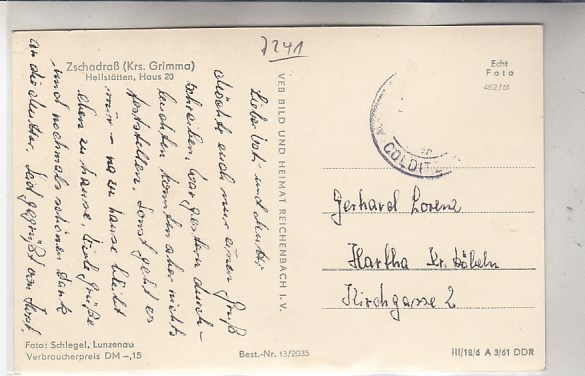 7241
Zschadraß (Krs. Grimma)
Heilstätten, Haus 20
Liebe Vati und Mutter
Möchte euch nur einen Gruß
schreiben, war gestern durch-
leuchten konnten aber nichts
feststellen, sonst geht es
mir – na zu hause bleibt
eben zu hause, viele Grüße
und nochmals schönen Dank
an die Mutter, seid gegrüßt von
VEB BILD UND HEIMAT REICHENBACH I. V.
Echt
Foto
482/61
COLDI
Gerhard Lorenz
Hartha Kr. Döbeln
Kirchgasse 2
Foto: Schlegel, Lunzenau
Verbraucherpreis DM –,15
Best.-Nr. 13/2035
III/18/6 A 3/61 DDR